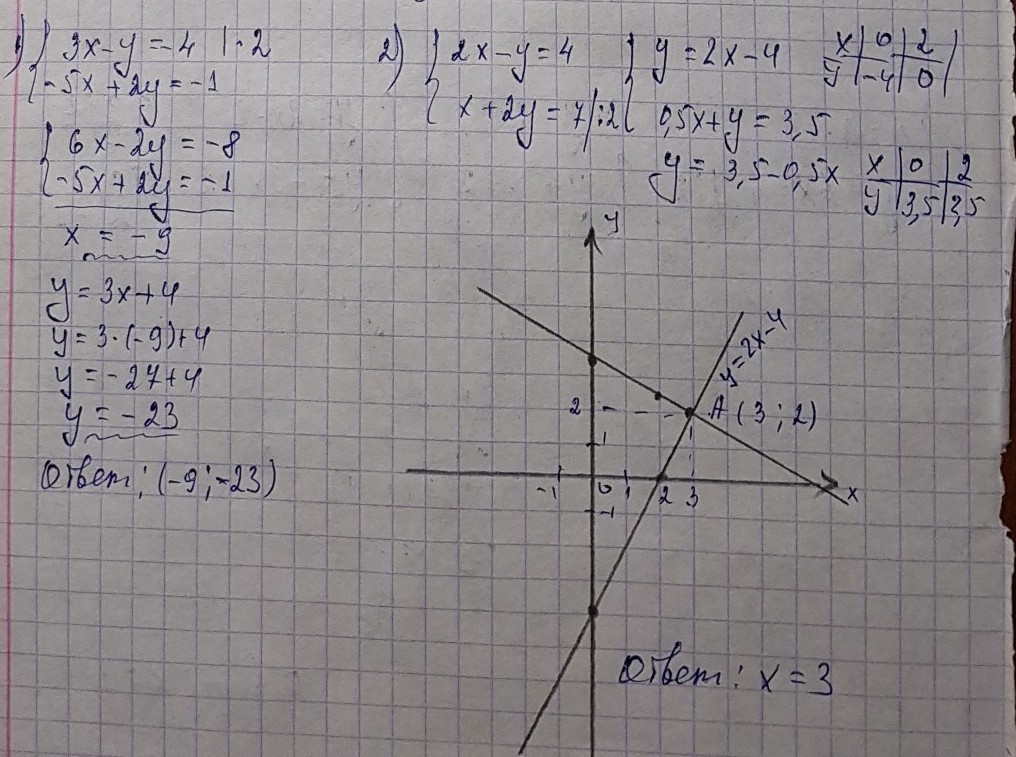 1) { 3x-y=-4 | · 2
{ -5x+2y=-1
{ 6x-2y=-8
{ -5x+2y=-1
x = -9
y=3x+4
y=3·(-9)+4
y=-27+4
y = -23
Ответ: (-9;-23)
2) { 2x-y=4
{ x+2y=7 | :2
{ y=2x-4
x | 0 | 2
y | -4 | 0
{ 0,5x+y=3,5
y = 3,5-0,5x
x | 0 | 2
y | 3,5 | 2,5
y
y=2x-4
2
A (3;2)
1
-1
0
1
2
3
x
-1
Ответ: x=3